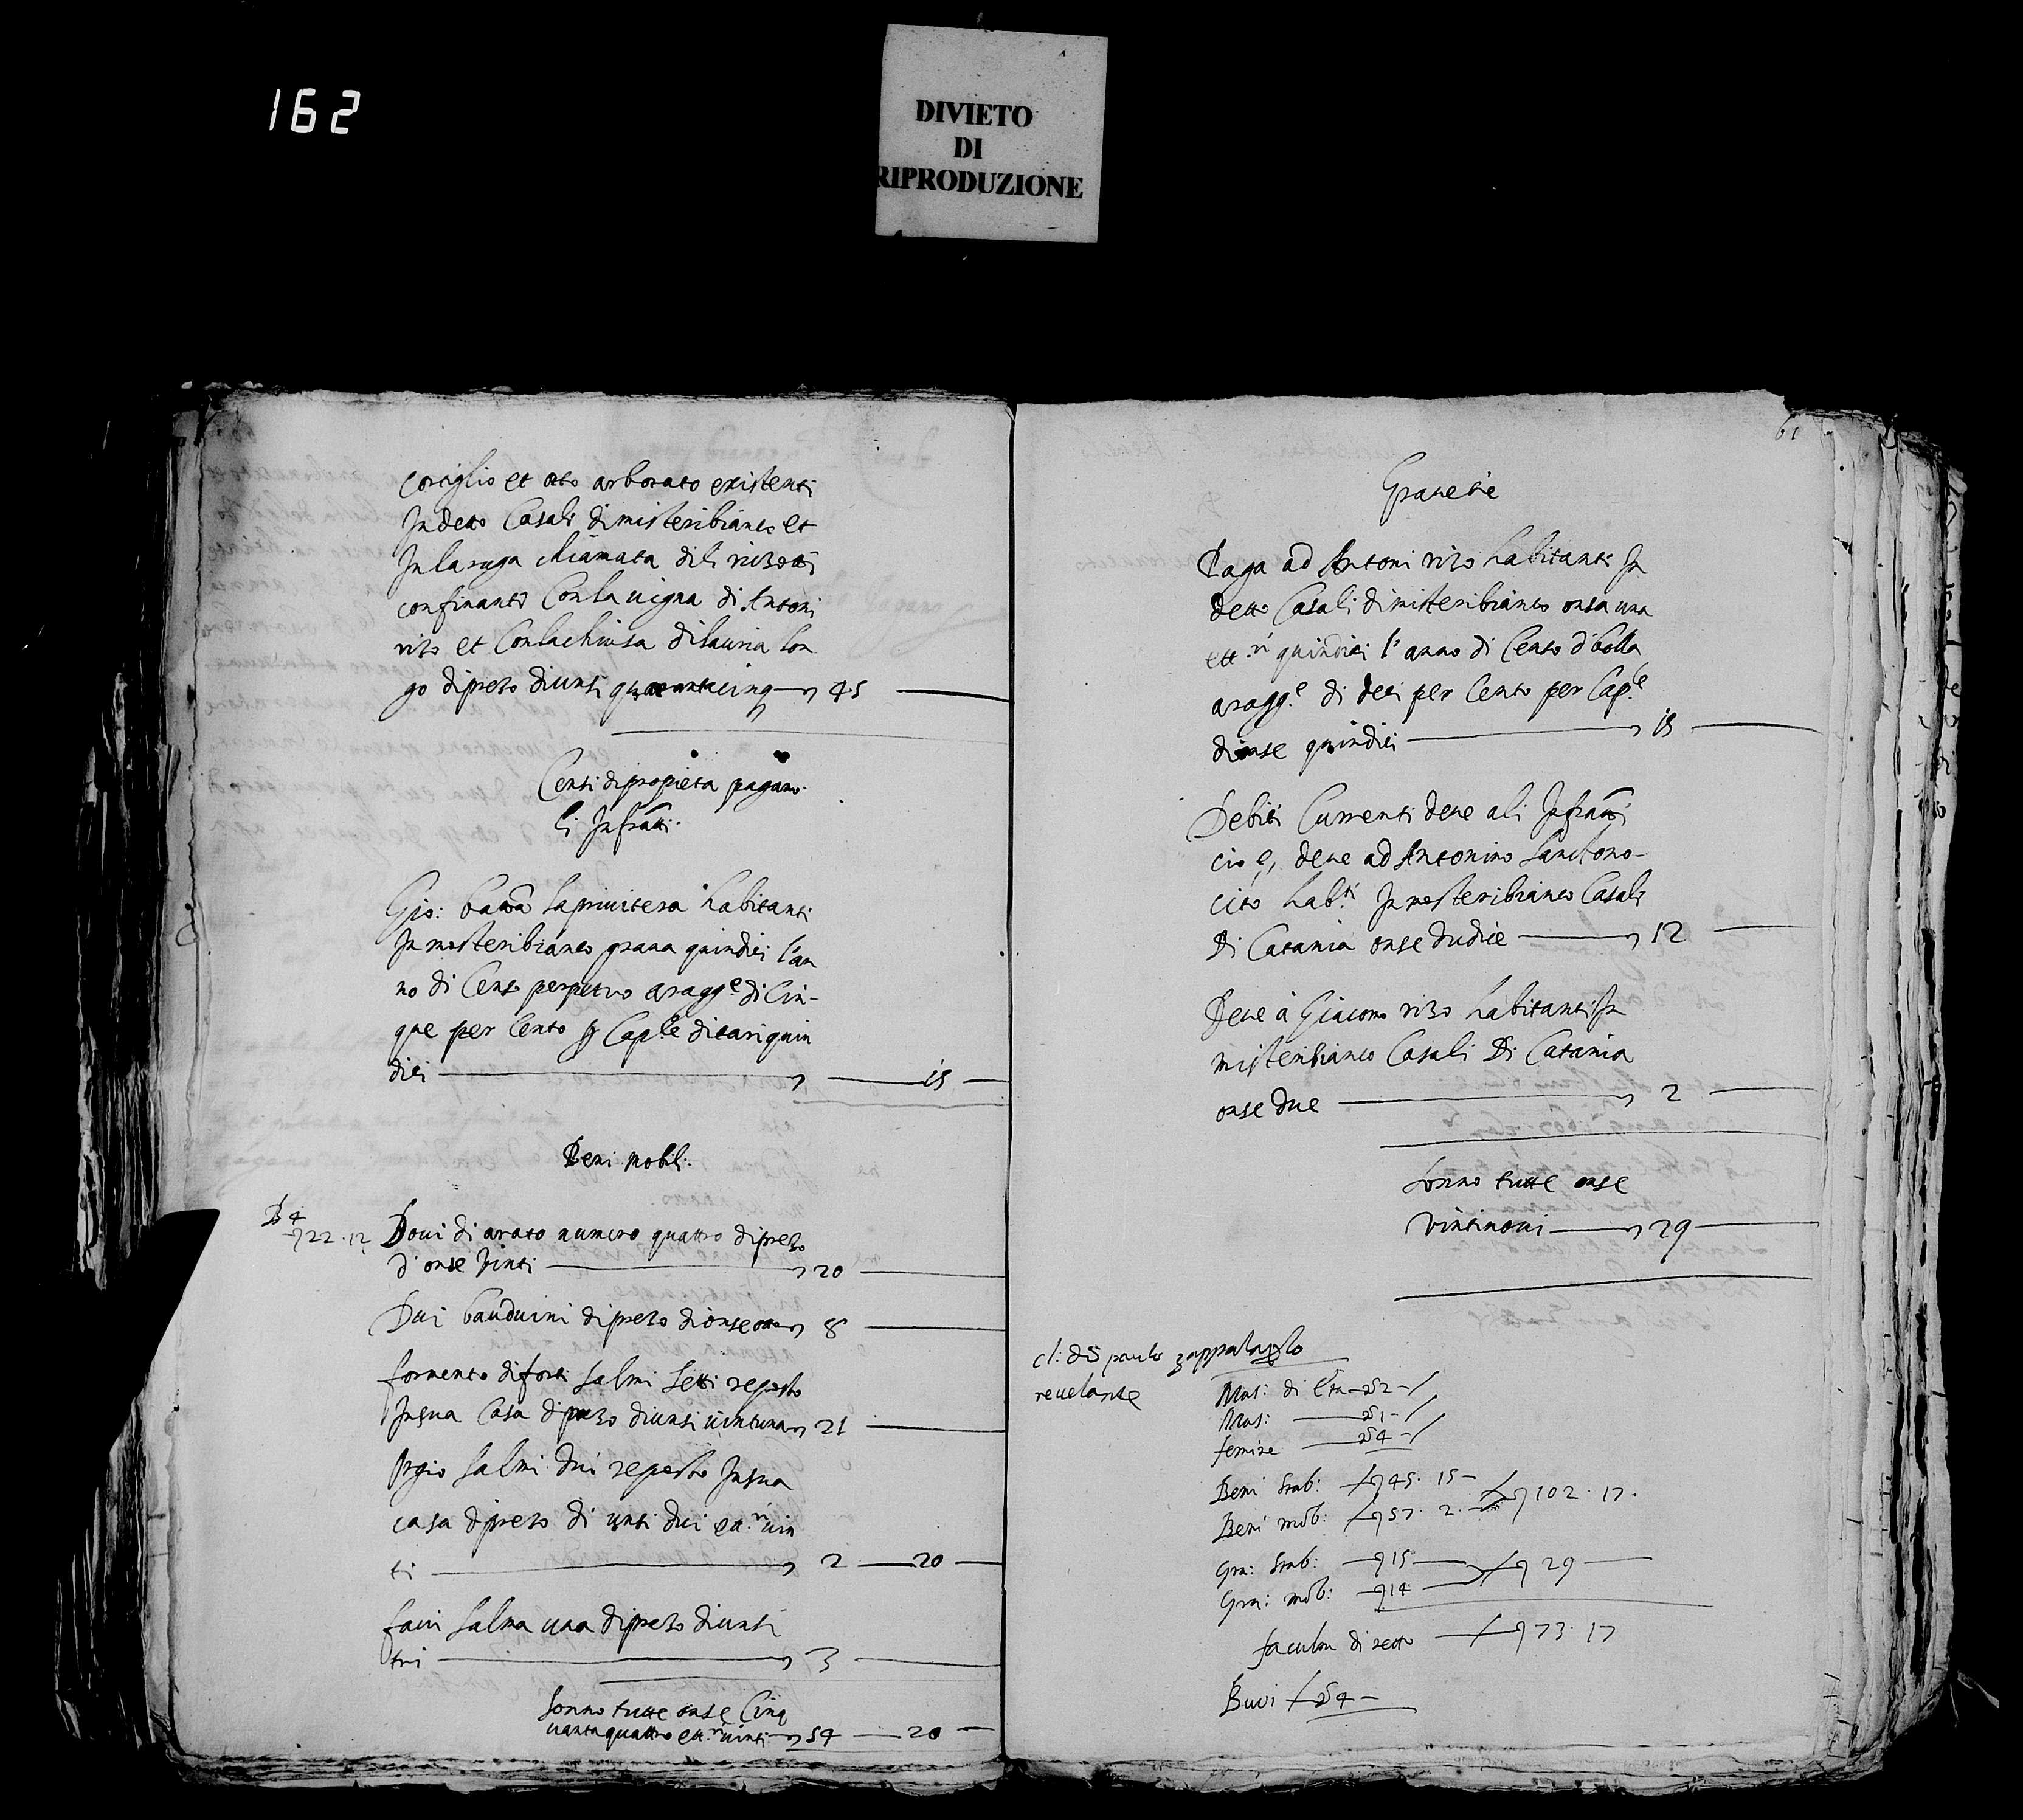 162
DIVIETO
DI
RIPRODUZIONE
cortiglio et orto arborato existenti
In detto Casali di misteribianco et
In la ruga chiamata di li rizotti
confinanti Con la vigna di Antoni
rizo et Con la chiusa di lauria lon
go di prezo di unsi quarantacinq 45
Censi di propieta pagano
li Infratti
Gio: batta lapunitera habitanti
In mosteribianco grana quindici l'an
no di Censo perpetuo a ragg.e di Cin-
que per Cento p Cap.le di tari quin
dici 15
Beni mobili
B 4
22.12
Boui di arato numero quattro di prezo
d'onse Vinti 20
Dui bauduini di prezo di onse otto 8
formento di forti salmi setti reposto
In sua Casa di prezo di unsi vintuna 21
Orgio salmi dui reposto In sua
casa di prezo di unsi dui et t.ri vin
ti 2 20
faui salma una di prezo di unsi
tri 3
sonno tutte onse Cinq
uantaquattro et t.ri vinti 54 20
61
Gravezie
Paga ad Antoni rizo habitanti In
detto Casali di misteribianco onsa una
et t.ri quindici l'anno di Censo di bolla
a ragg.e di deci per Cento per Cap.le
di onse quindici 15
Debiti Currenti deue a li Infratti
cioe, deue ad Antonino Santono-
cito hab.ti In mosteribianco Casali
Di Catania onse dudice 12
Deue à Giacomo rizo habitanti In
misteribianco Casali Di Catania
onse due 2
sonno tutte onse
Vintinoui 29
cl: di paulo zappalaglo
reuelante
Mas: di Eta 2
Mas: 1
femine 4
Beni stab: 45.15
102.17.
Beni mob: 57.2.
Gra: stab: 15
29
Gra: mob: 14
facultà di netto 73.17
Buui 4